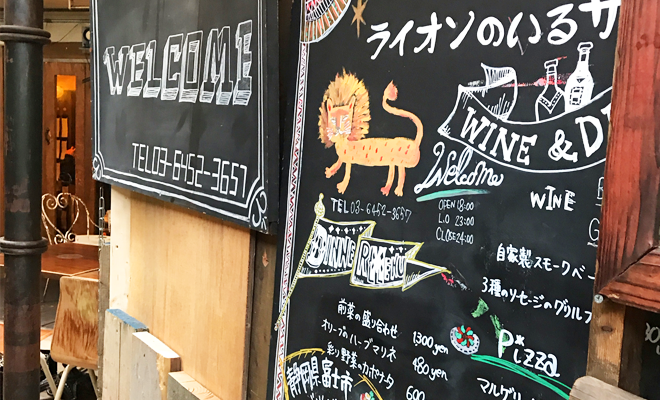 WELCOME
TEL03-6452-3657
ライオンのいるサ
WINE & D
Welcome
TEL 03-6452-3657
OPEN 18:00
L.O 23:00
CLOSE 24:00
WINE
DINNER MENU
自家製スモークベー
3種のソーセージのグリル
前菜の盛り合わせ 1300yen
オリーブのハーブマリネ 480yen
彩り野菜のカポナータ
600
静岡県富士市
Pizza
マルゲリ